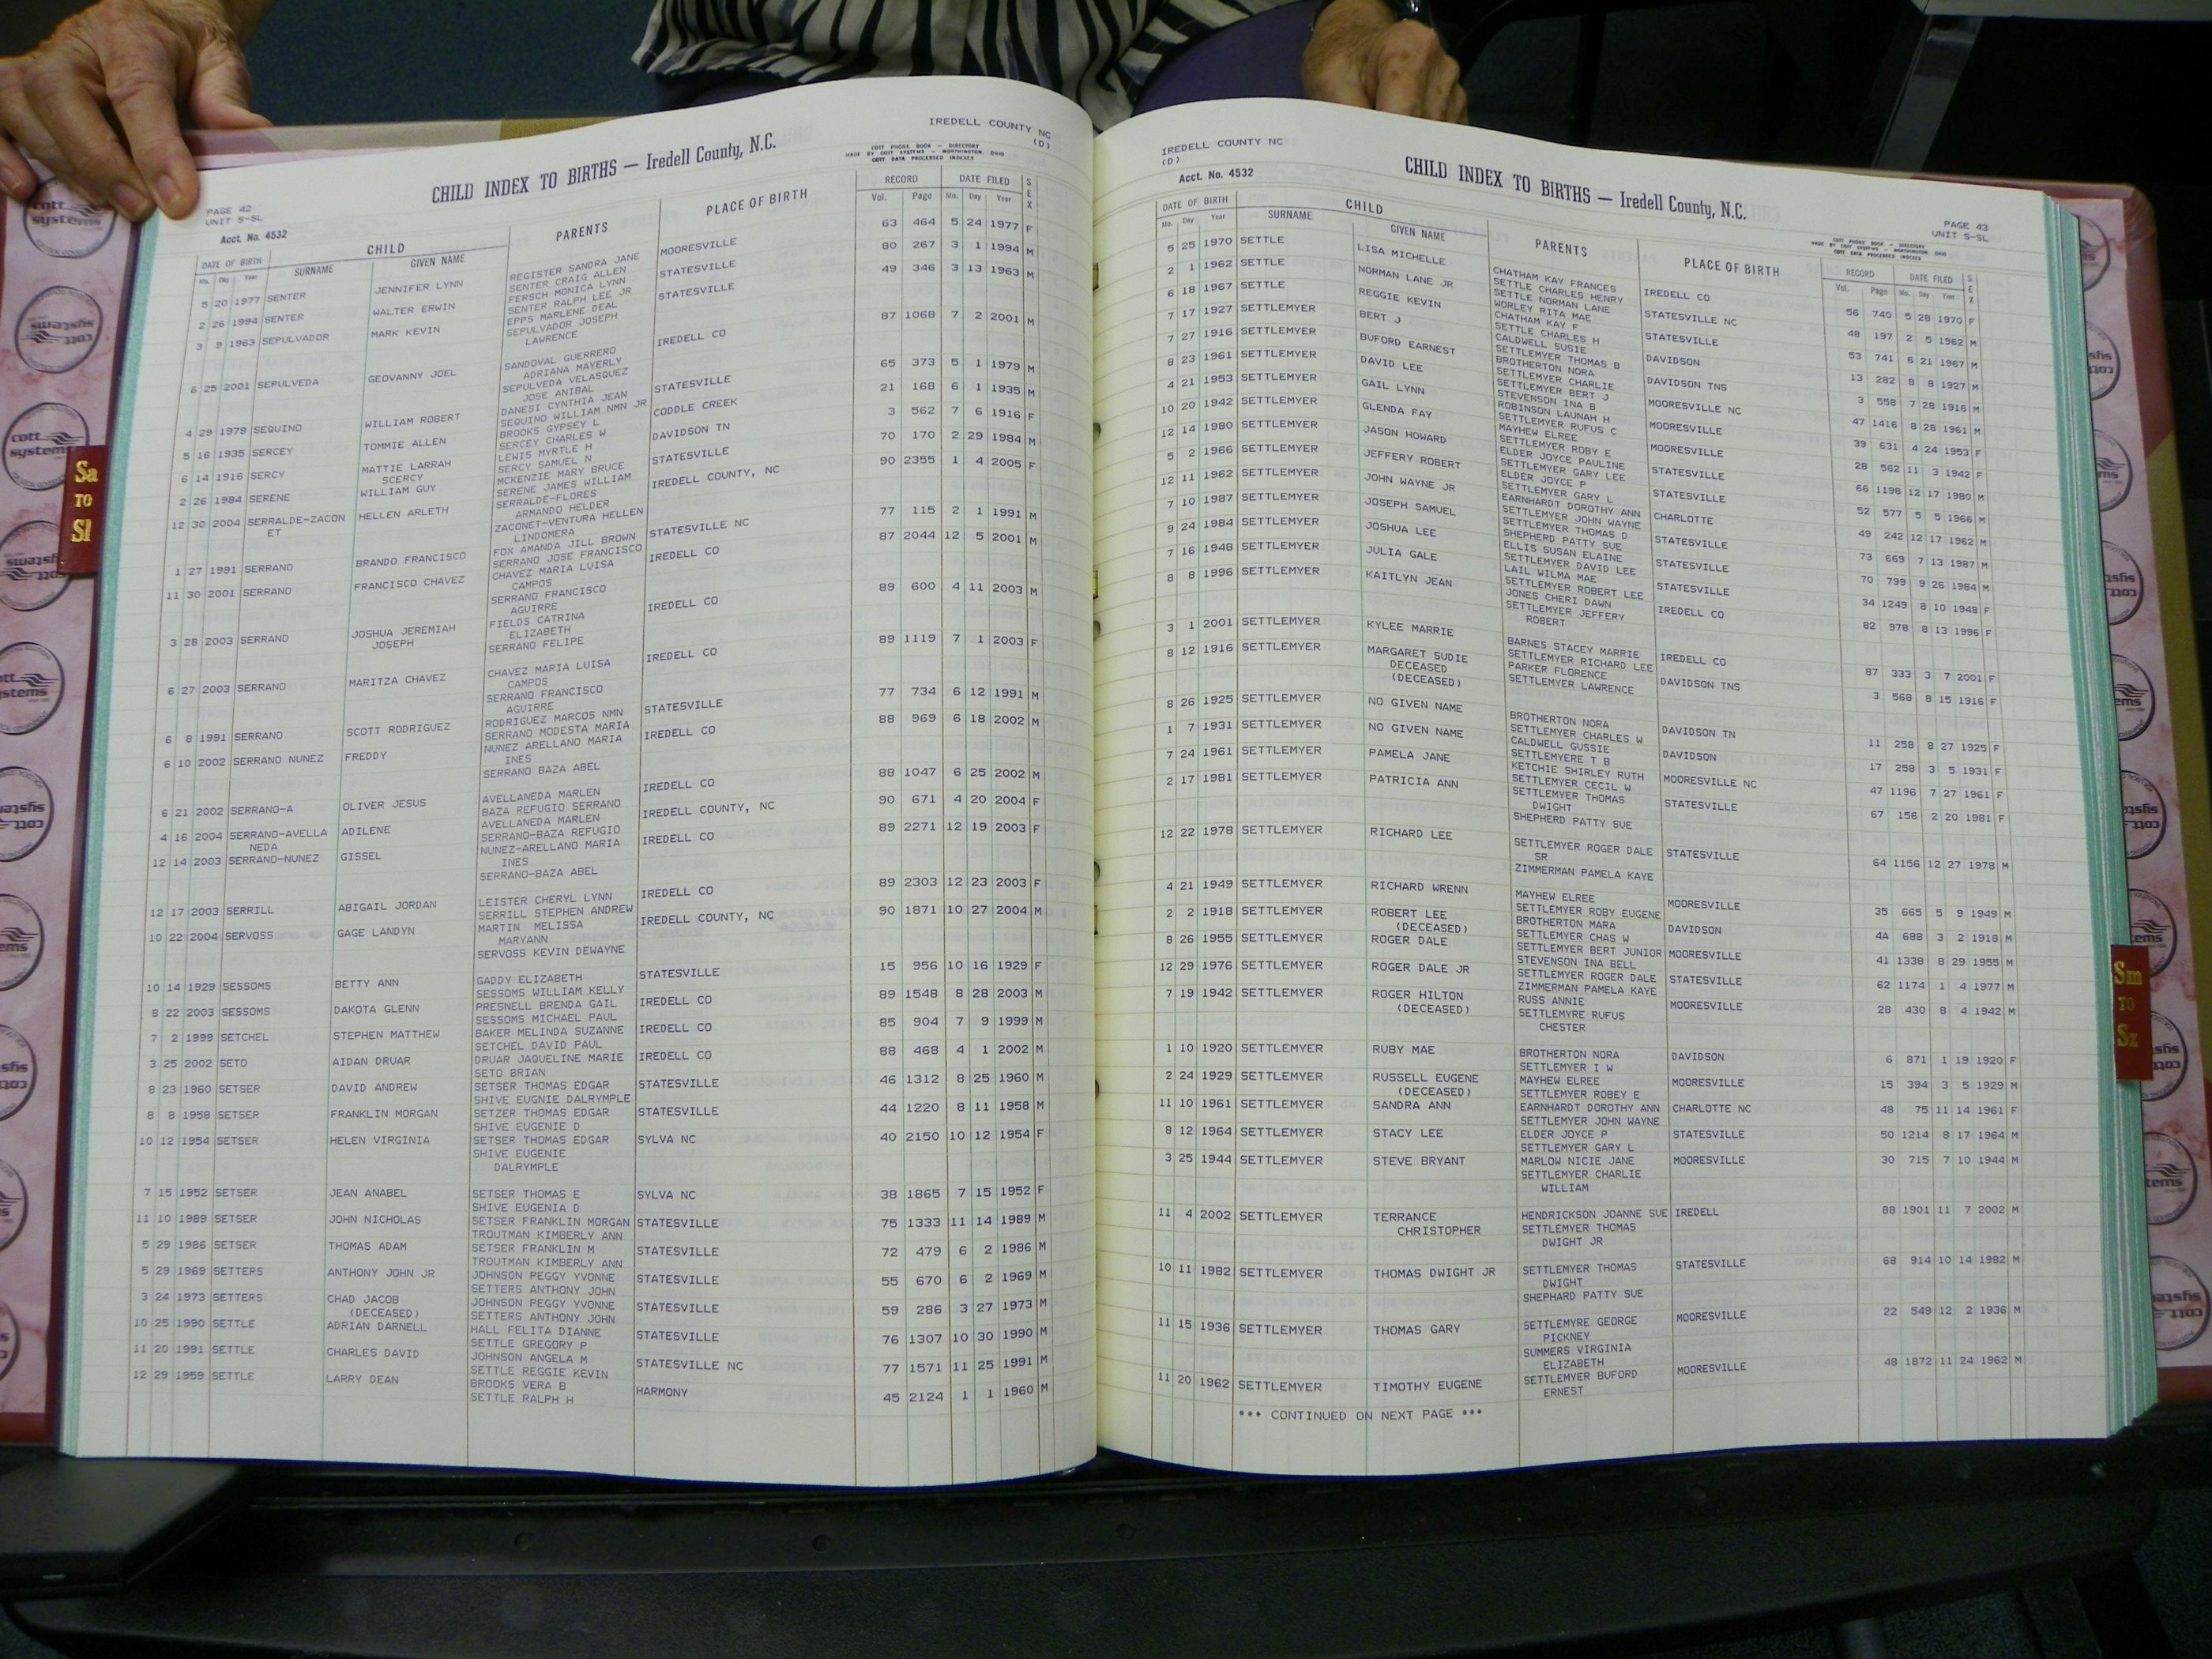 IREDELL COUNTY NC
(D)
CHILD INDEX TO BIRTHS — Iredell County, N.C.
COTT PHONE BOOK — DIRECTORY
MADE BY COTT SYSTEMS — WORTHINGTON, OHIO
COTT DATA PROCESSED INDEXES
PAGE 42
UNIT S-SL
Acct. No. 4532
DATE OF BIRTH CHILD PARENTS PLACE OF BIRTH RECORD DATE FILED SEX
Mo. Day Year SURNAME GIVEN NAME Vol. Page Mo. Day Year
5 20 1977 SENTER JENNIFER LYNN REGISTER SANDRA JANE MOORESVILLE 63 464 5 24 1977 F
SENTER CRAIG ALLEN
2 26 1994 SENTER WALTER ERWIN FERSCH MONICA LYNN STATESVILLE 80 267 3 1 1994 M
SENTER RALPH LEE JR
3 9 1963 SEPULVADOR MARK KEVIN EPPS MARLENE DEAL STATESVILLE 49 346 3 13 1963 M
SEPULVADOR JOSEPH
LAWRENCE
6 25 2001 SEPULVEDA GEOVANNY JOEL SANDOVAL GUERRERO IREDELL CO 87 1068 7 2 2001 M
ADRIANA MAYERLY
SEPULVEDA VELASQUEZ
JOSE ANIBAL
4 29 1979 SEQUINO WILLIAM ROBERT DANESI CYNTHIA JEAN STATESVILLE 65 373 5 1 1979 M
SEQUINO WILLIAM NMN JR
5 16 1935 SERCEY TOMMIE ALLEN BROOKS GYPSEY L CODDLE CREEK 21 168 6 1 1935 M
SERCEY CHARLES W
6 14 1916 SERCY MATTIE LARRAH LEWIS MYRTLE H DAVIDSON TN 3 562 7 6 1916 F
SCERCY SERCY SAMUEL N
2 26 1984 SERENE WILLIAM GUY MCKENZIE MARY BRUCE STATESVILLE 70 170 2 29 1984 M
SERENE JAMES WILLIAM
12 30 2004 SERRALDE-ZACON HELLEN ARLETH SERRALDE-FLORES IREDELL COUNTY, NC 90 2355 1 4 2005 F
ET ARMANDO HELDER
ZACONET-VENTURA HELLEN
LINDOMERA
1 27 1991 SERRANO BRANDO FRANCISCO FOX AMANDA JILL BROWN STATESVILLE NC 77 115 2 1 1991 M
SERRANO JOSE FRANCISCO
11 30 2001 SERRANO FRANCISCO CHAVEZ CHAVEZ MARIA LUISA IREDELL CO 87 2044 12 5 2001 M
CAMPOS
SERRANO FRANCISCO
AGUIRRE
3 28 2003 SERRANO JOSHUA JEREMIAH FIELDS CATRINA IREDELL CO 89 600 4 11 2003 M
JOSEPH ELIZABETH
SERRANO FELIPE
6 27 2003 SERRANO MARITZA CHAVEZ CHAVEZ MARIA LUISA IREDELL CO 89 1119 7 1 2003 F
CAMPOS
SERRANO FRANCISCO
AGUIRRE
6 8 1991 SERRANO SCOTT RODRIGUEZ RODRIGUEZ MARCOS NMN STATESVILLE 77 734 6 12 1991 M
SERRANO MODESTA MARIA
6 10 2002 SERRANO NUNEZ FREDDY NUNEZ ARELLANO MARIA IREDELL CO 88 969 6 18 2002 M
INES
SERRANO BAZA ABEL
6 21 2002 SERRANO-A OLIVER JESUS AVELLANEDA MARLEN IREDELL CO 88 1047 6 25 2002 M
BAZA REFUGIO SERRANO
4 16 2004 SERRANO-AVELLA ADILENE AVELLANEDA MARLEN IREDELL COUNTY, NC 90 671 4 20 2004 F
NEDA SERRANO-BAZA REFUGIO
12 14 2003 SERRANO-NUNEZ GISSEL NUNEZ-ARELLANO MARIA IREDELL CO 89 2271 12 19 2003 F
INES
SERRANO-BAZA ABEL
12 17 2003 SERRILL ABIGAIL JORDAN LEISTER CHERYL LYNN IREDELL CO 89 2303 12 23 2003 F
SERRILL STEPHEN ANDREW
10 22 2004 SERVOSS GAGE LANDYN MARTIN MELISSA IREDELL COUNTY, NC 90 1871 10 27 2004 M
MARYANN
SERVOSS KEVIN DEWAYNE
10 14 1929 SESSOMS BETTY ANN GADDY ELIZABETH STATESVILLE 15 956 10 16 1929 F
SESSOMS WILLIAM KELLY
8 22 2003 SESSOMS DAKOTA GLENN PRESNELL BRENDA GAIL IREDELL CO 89 1548 8 28 2003 M
SESSOMS MICHAEL PAUL
7 2 1999 SETCHEL STEPHEN MATTHEW BAKER MELINDA SUZANNE IREDELL CO 85 904 7 9 1999 M
SETCHEL DAVID PAUL
3 25 2002 SETO AIDAN DRUAR DRUAR JAQUELINE MARIE IREDELL CO 88 468 4 1 2002 M
SETO BRIAN
8 23 1960 SETSER DAVID ANDREW SETSER THOMAS EDGAR STATESVILLE 46 1312 8 25 1960 M
SHIVE EUGNIE DALRYMPLE
8 8 1958 SETSER FRANKLIN MORGAN SETZER THOMAS EDGAR STATESVILLE 44 1220 8 11 1958 M
SHIVE EUGENIE D
10 12 1954 SETSER HELEN VIRGINIA SETSER THOMAS EDGAR SYLVA NC 40 2150 10 12 1954 F
SHIVE EUGENIE
DALRYMPLE
7 15 1952 SETSER JEAN ANABEL SETSER THOMAS E SYLVA NC 38 1865 7 15 1952 F
SHIVE EUGENIA D
11 10 1989 SETSER JOHN NICHOLAS SETSER FRANKLIN MORGAN STATESVILLE 75 1333 11 14 1989 M
TROUTMAN KIMBERLY ANN
5 29 1986 SETSER THOMAS ADAM SETSER FRANKLIN M STATESVILLE 72 479 6 2 1986 M
TROUTMAN KIMBERLY ANN
5 29 1969 SETTERS ANTHONY JOHN JR JOHNSON PEGGY YVONNE STATESVILLE 55 670 6 2 1969 M
SETTERS ANTHONY JOHN
3 24 1973 SETTERS CHAD JACOB JOHNSON PEGGY YVONNE STATESVILLE 59 286 3 27 1973 M
(DECEASED) SETTERS ANTHONY JOHN
10 25 1990 SETTLE ADRIAN DARNELL HALL FELITA DIANNE STATESVILLE 76 1307 10 30 1990 M
SETTLE GREGORY P
11 20 1991 SETTLE CHARLES DAVID JOHNSON ANGELA M STATESVILLE NC 77 1571 11 25 1991 M
SETTLE REGGIE KEVIN
12 29 1959 SETTLE LARRY DEAN BROOKS VERA B HARMONY 45 2124 1 1 1960 M
SETTLE RALPH H
IREDELL COUNTY NC
(D)
Acct. No. 4532
CHILD INDEX TO BIRTHS — Iredell County, N.C.
PAGE 43
UNIT S-SL
COTT PHONE BOOK — DIRECTORY
MADE BY COTT SYSTEMS — WORTHINGTON, OHIO
COTT DATA PROCESSED INDEXES
DATE OF BIRTH CHILD PARENTS PLACE OF BIRTH RECORD DATE FILED SEX
Mo. Day Year SURNAME GIVEN NAME Vol. Page Mo. Day Year
5 25 1970 SETTLE LISA MICHELLE CHATHAM KAY FRANCES IREDELL CO 56 740 5 28 1970 F
SETTLE CHARLES HENRY
2 1 1962 SETTLE NORMAN LANE JR SETTLE NORMAN LANE STATESVILLE NC 48 197 2 5 1962 M
WORLEY RITA MAE
6 18 1967 SETTLE REGGIE KEVIN CHATHAM KAY F STATESVILLE 53 741 6 21 1967 M
SETTLE CHARLES H
7 17 1927 SETTLEMYER BERT J CALDWELL SUSIE DAVIDSON 13 282 8 8 1927 M
SETTLEMYER THOMAS B
7 27 1916 SETTLEMYER BUFORD EARNEST BROTHERTON NORA DAVIDSON TNS 3 558 7 28 1916 M
SETTLEMYER CHARLIE
8 23 1961 SETTLEMYER DAVID LEE SETTLEMYER BERT J MOORESVILLE NC 47 1416 8 28 1961 M
STEVENSON INA B
4 21 1953 SETTLEMYER GAIL LYNN ROBINSON LAUNAH H MOORESVILLE 39 631 4 24 1953 F
SETTLEMYER RUFUS C
10 20 1942 SETTLEMYER GLENDA FAY MAYHEW ELREE MOORESVILLE 28 562 11 3 1942 F
SETTLEMYER ROBY E
12 14 1980 SETTLEMYER JASON HOWARD ELDER JOYCE PAULINE STATESVILLE 66 1198 12 17 1980 M
SETTLEMYER GARY LEE
5 2 1966 SETTLEMYER JEFFERY ROBERT ELDER JOYCE P STATESVILLE 52 577 5 5 1966 M
SETTLEMYER GARY L
12 11 1962 SETTLEMYER JOHN WAYNE JR EARNHARDT DOROTHY ANN CHARLOTTE 49 242 12 17 1962 M
SETTLEMYER JOHN WAYNE
7 10 1987 SETTLEMYER JOSEPH SAMUEL SETTLEMYER THOMAS D STATESVILLE 73 669 7 13 1987 M
SHEPHERD PATTY SUE
9 24 1984 SETTLEMYER JOSHUA LEE ELLIS SUSAN ELAINE STATESVILLE 70 799 9 26 1984 M
SETTLEMYER DAVID LEE
7 16 1948 SETTLEMYER JULIA GALE LAIL WILMA MAE STATESVILLE 34 1249 8 10 1948 F
SETTLEMYER ROBERT LEE
8 8 1996 SETTLEMYER KAITLYN JEAN JONES CHERI DAWN IREDELL CO 82 978 8 13 1996 F
SETTLEMYER JEFFERY
ROBERT
3 1 2001 SETTLEMYER KYLEE MARRIE BARNES STACEY MARRIE IREDELL CO 87 333 3 7 2001 F
SETTLEMYER RICHARD LEE
8 12 1916 SETTLEMYER MARGARET SUDIE PARKER FLORENCE DAVIDSON TNS 3 568 8 15 1916 F
DECEASED SETTLEMYER LAWRENCE
(DECEASED)
8 26 1925 SETTLEMYER NO GIVEN NAME BROTHERTON NORA DAVIDSON TN 11 258 8 27 1925 F
SETTLEMYER CHARLES W
1 7 1931 SETTLEMYER NO GIVEN NAME CALDWELL GUSSIE DAVIDSON 17 258 3 5 1931 F
SETTLEMYERE T B
7 24 1961 SETTLEMYER PAMELA JANE KETCHIE SHIRLEY RUTH MOORESVILLE NC 47 1196 7 27 1961 F
SETTLEMYER CECIL W
2 17 1981 SETTLEMYER PATRICIA ANN SETTLEMYER THOMAS STATESVILLE 67 156 2 20 1981 F
DWIGHT
SHEPHERD PATTY SUE
12 22 1978 SETTLEMYER RICHARD LEE SETTLEMYER ROGER DALE STATESVILLE 64 1156 12 27 1978 M
SR
ZIMMERMAN PAMELA KAYE
4 21 1949 SETTLEMYER RICHARD WRENN MAYHEW ELREE MOORESVILLE 35 665 5 9 1949 M
SETTLEMYER ROBY EUGENE
2 2 1918 SETTLEMYER ROBERT LEE BROTHERTON MARA DAVIDSON 4A 688 3 2 1918 M
(DECEASED) SETTLEMYER CHAS W
8 26 1955 SETTLEMYER ROGER DALE SETTLEMYER BERT JUNIOR MOORESVILLE 41 1338 8 29 1955 M
STEVENSON INA BELL
12 29 1976 SETTLEMYER ROGER DALE JR SETTLEMYER ROGER DALE STATESVILLE 62 1174 1 4 1977 M
ZIMMERMAN PAMELA KAYE
7 19 1942 SETTLEMYER ROGER HILTON RUSS ANNIE MOORESVILLE 28 430 8 4 1942 M
(DECEASED) SETTLEMYRE RUFUS
CHESTER
1 10 1920 SETTLEMYER RUBY MAE BROTHERTON NORA DAVIDSON 6 871 1 19 1920 F
SETTLEMYER I W
2 24 1929 SETTLEMYER RUSSELL EUGENE MAYHEW ELREE MOORESVILLE 15 394 3 5 1929 M
(DECEASED) SETTLEMYER ROBEY E
11 10 1961 SETTLEMYER SANDRA ANN EARNHARDT DOROTHY ANN CHARLOTTE NC 48 75 11 14 1961 F
SETTLEMYER JOHN WAYNE
8 12 1964 SETTLEMYER STACY LEE ELDER JOYCE P STATESVILLE 50 1214 8 17 1964 M
SETTLEMYER GARY L
3 25 1944 SETTLEMYER STEVE BRYANT MARLOW NICIE JANE MOORESVILLE 30 715 7 10 1944 M
SETTLEMYER CHARLIE
WILLIAM
11 4 2002 SETTLEMYER TERRANCE HENDRICKSON JOANNE SUE IREDELL 88 1901 11 7 2002 M
CHRISTOPHER SETTLEMYER THOMAS
DWIGHT JR
10 11 1982 SETTLEMYER THOMAS DWIGHT JR SETTLEMYER THOMAS STATESVILLE 68 914 10 14 1982 M
DWIGHT
SHEPHARD PATTY SUE
11 15 1936 SETTLEMYER THOMAS GARY SETTLEMYRE GEORGE MOORESVILLE 22 549 12 2 1936 M
PICKNEY
SUMMERS VIRGINIA
ELIZABETH
11 20 1962 SETTLEMYER TIMOTHY EUGENE SETTLEMYER BUFORD MOORESVILLE 48 1872 11 24 1962 M
ERNEST
*** CONTINUED ON NEXT PAGE ***
Sa
TO
Sl
Sm
TO
Sz
cott
systems